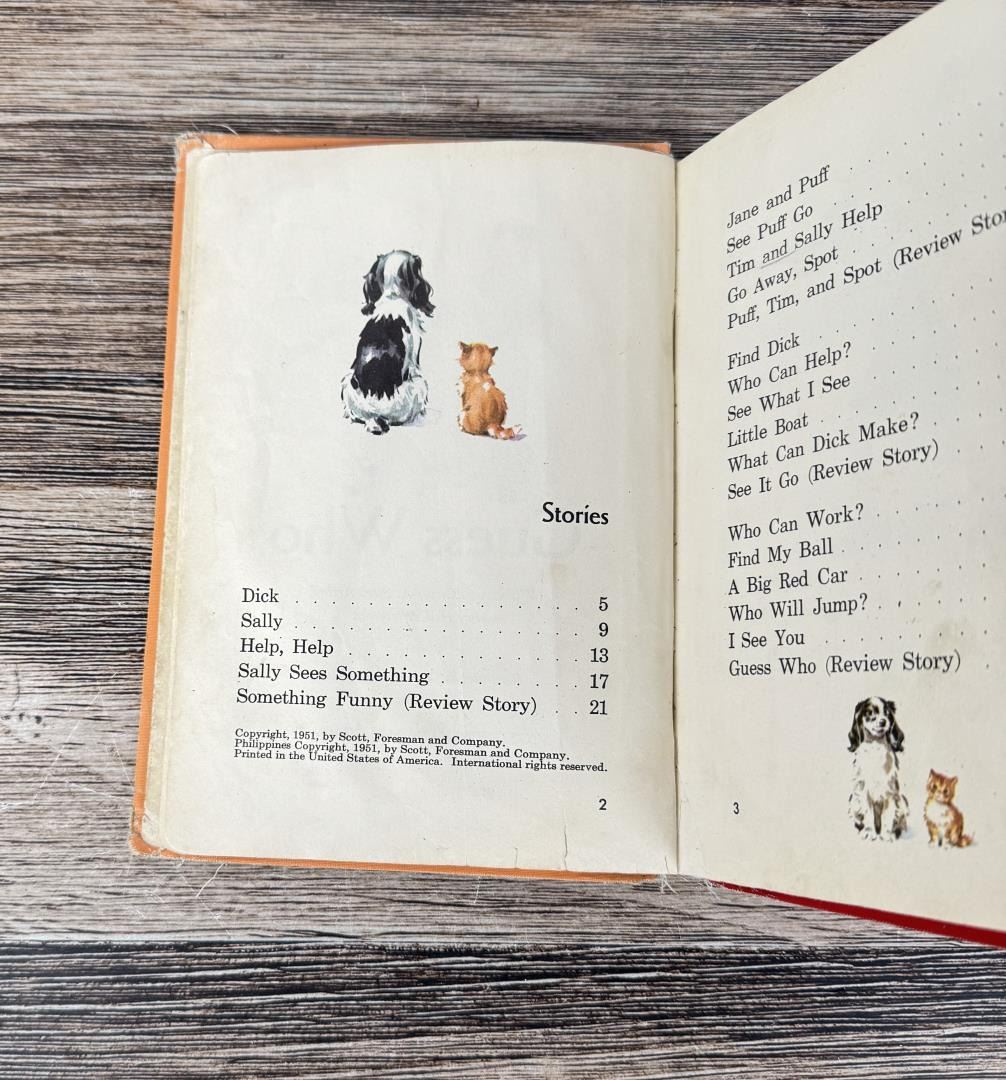 Stories
Dick . . . . . . . . . . . . . . . . 5
Sally . . . . . . . . . . . . . . . . 9
Help, Help . . . . . . . . . . . . . 13
Sally Sees Something . . . . . . . 17
Something Funny (Review Story) . . 21
Copyright, 1951, by Scott, Foresman and Company.
Philippines Copyright, 1951, by Scott, Foresman and Company.
Printed in the United States of America. International rights reserved.
2
Jane and Puff
See Puff Go
Tim and Sally Help
Go Away, Spot
Puff, Tim, and Spot (Review
Find Dick
Who Can Help?
See What I See
Little Boat
What Can Dick Make?
See It Go (Review Story)
Who Can Work?
Find My Ball
A Big Red Car
Who Will Jump?
I See You
Guess Who (Review Story)
3